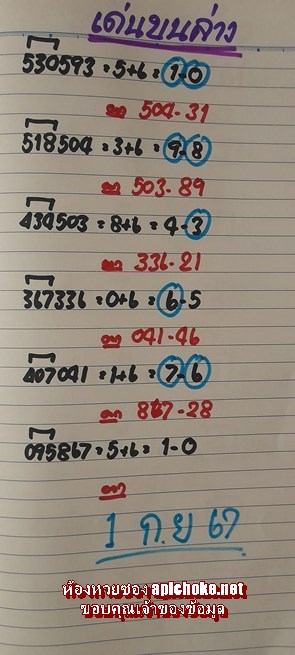 เด่นบนล่าง
530593 = 5+6 = 1-0
ออก 504-31
518504 = 3+6 = 9-8
ออก 503-89
434503 = 8+6 = 4-3
ออก 336-21
367336 = 0+6 = 6-5
ออก 041-46
407041 = 1+6 = 7-6
ออก 867-28
095867 = 5+6 = 1-0
ออก
1 ก.ย 67
ห้องหวยซอง apichoke.net
ขอบคุณเจ้าของข้อมูล